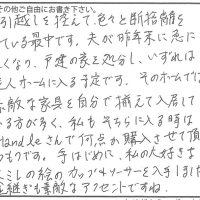 その他ご自由にお書き下さい。
引越しを控えて、色々と断捨離を
ている最中です。夫が昨年末に急に
くなり、戸建の家を処分し、いずれは
老人ホームに入る予定です。そのホームで
素敵な家具を自分で揃えて入居して
いる方が多く、私もそちらに入る時は
Handleさんで何点か購入させて頂
つもりです。手はじめに、私の大好きな
スミレの絵のカップ&ソーサーを入手しました
金継ぎも素敵なアクセントですね。